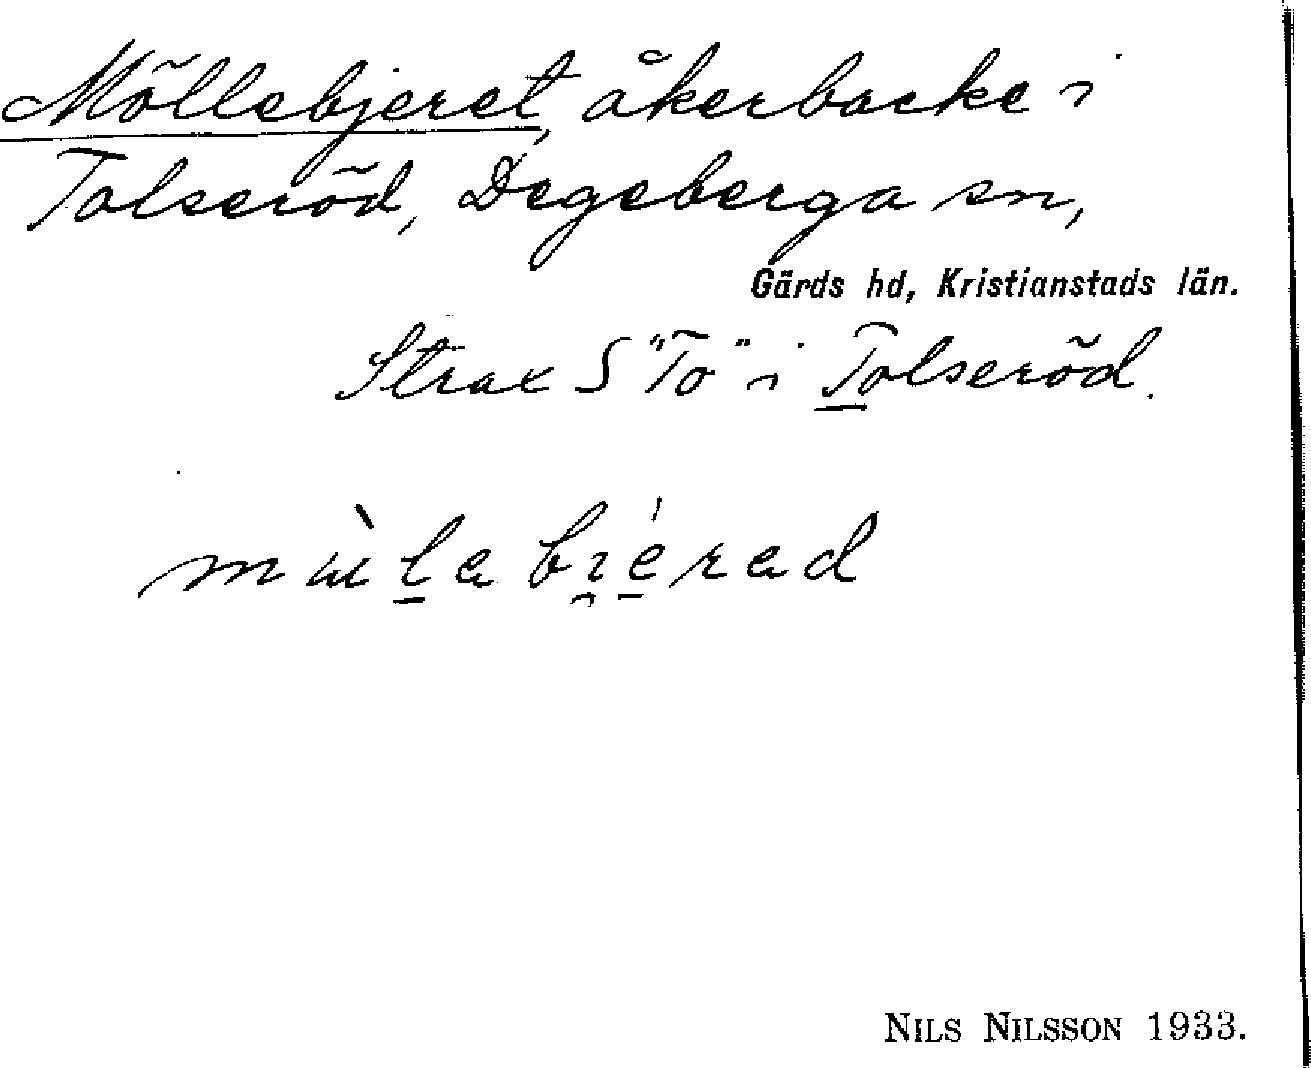 Möllebjeret, åkerbacke i
Tolseröd, Degeberga sn,
Gärds hd, Kristianstads län.
Strax S "To" i Tolseröd.
NILS NILSSON 1933.